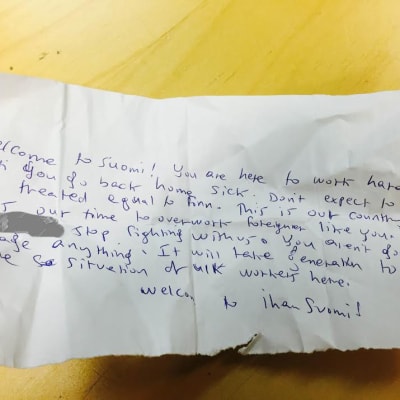 elcome to Suomi! You are here to work hard
you go back home sick. Don't expect to
treated equal to finn. This is our countr
our time to overwork foreigner like you.
stop fighting with us. You aren't go
age anything. It will take generation to
situation of ulk workers here.
welcom to ihan Suomi!